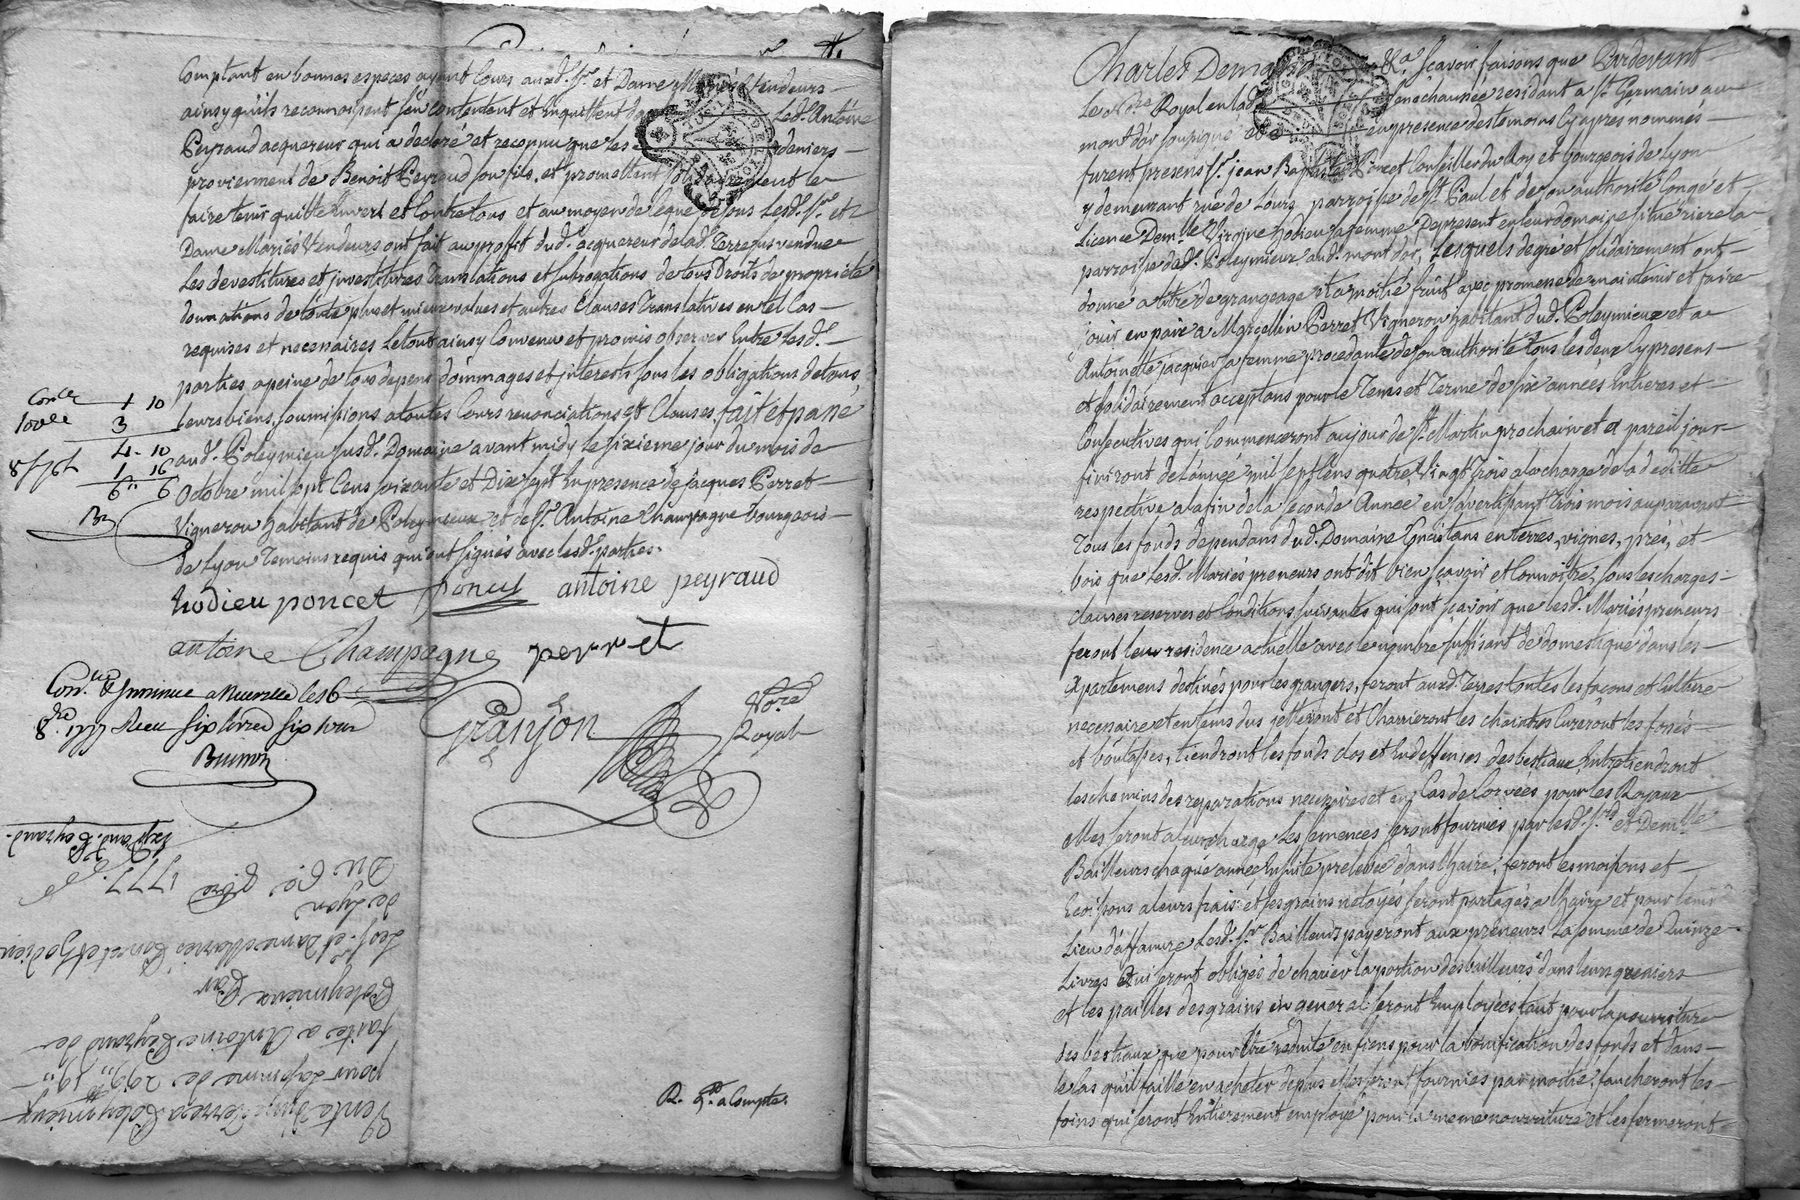 Comptant en bonnes especes ayant Cours auxd. Sr. et Dame Mariés Vendeurs
ainsy qu'ils reconnoissent s'en contentent et en quittent led. Antoine
Peyraud acquereur qui a declaré et reconnu que les deniers
proviennent de Benoit Peyraud son fils, et promettant solidairement le
faire tenir quitte envers et Contre tous et au moyen de ce que dessus Lesd. Sr. et
Dame Mariés Vendeurs ont fait au profit dud. acquereur de lad. Terre cy vendue
Les devestitures et investitures Translations et subrogations de tous Droits de proprieté
donnations de toute plus et mieux values et autres Clauses Translatives en tel Cas
requises et necessaires Le tout ainsy Convenu et promis observer Entre Lesd.
parties a peine de tous depens dommages et interests sous les obligations de tous
Leurs biens, soumissions a toutes Cours renonciations et Clauses, fait et passé
aud. Poleymieu susd. Domaine avant midy le sixieme jour du mois de
Octobre mil sept Cens soixante et Dix sept En presence de Jacques Perret
Vigneron habitant de Poleymieux et de Sr. Antoine Champagne bourgeois
de Lyon Temoins requis qui ont signés avec lesd. parties.
hodieu poncet poncet antoine peyraud
antoine Champagne perret
Granjon Nore. Royal
1 10
3
4 - 10
1. 16
6 " 6
Con.lé & Insinué a Neuville les 6
8bre 1777 Reçu six livres six sous
Brunon
Vente d'une Terre a Poleymieux
pour la somme de 299 ll 19 s
faite a Antoine Peyraud de
Poleymieux Par
Les Sr. et Dame Mariés Poncet et Hodieu
de Lyon
Du 6e. 8bre
1777
Exp. aud. Sr. Peyraud.
R. a Compte.
Charles Demasso &a. scavoir faisons que Pardevant
le Nore. Royal en lad. Senechaussée residant a St. Germain au
mont d'or soussigné et en presence des temoins cy apres nommés
furent presens Sr. jean Baptiste Poncet Conseiller du Roy et bourgeois de Lyon
y demeurant rue de Lours parroisse de St. Paul et de son authorité Congé et
Licence Demlle. Virgine hodieu sa femme Depresent en leur domaine situé riere la
parroisse dud. Poleymieux aud. mont d'or, Lesquels de gré et solidairement ont
donné a titre de grangeage et a moitié fruit avec promesse de maintenir et faire
jouir en paix a Marcellin Perret Vigneron habitant dud. Poleymieux et a
Antoinette jacquier sa femme procedante de son authorité tous les deux cy presens
et solidairement acceptans pour le Tems et Terme de six années Entieres et
Consecutives qui Commenceront au jour de St. Martin prochain et a pareil jour
finiront de l'année mil sept Cens quatre Vingt Trois a la charge de la deditte
respective a la fin de la seconde Année en s'avertissant trois mois auparavant
Tous les fonds dependans dud. Domaine Consistans en terres, vignes, prés, et
bois que Lesd. Mariés preneurs ont dit bien sçavoir et Connoitre, sous les charges
clauses reserves et Conditions suivantes qui sont sçavoir que lesd. Mariés preneurs
feront leur residence actuelle avec le nombre suffisant de domestique dans les
Apartemens destinés pour les grangers, feront auxd. Terres toutes les façons et Culture
necessaire et en tems dus jetteront et Charrieront les chaintres Cureront les fossés
et boutasses, tiendront les fonds clos et en deffenses des bestiaux, Entretiendront
les chemins des reparations necessaires et en Cas de Corvées pour les Royaux
elles seront a leur charge Les semences seront fournies par lesd. Srs. et Demlle
Bailleurs chaque année Ensuite prelevée dans l'haire, feront les moissons et
Ecossons a leurs frais et les grains netoyés seront partagés a l'haire et pour leur
Lieu d'affanure Lesd. Srs. Bailleurs payeront aux preneurs La somme de Quinze
Livres et ils seront obligés de charier la portion des bailleurs dans leurs greniers
et les pailles des grains en general seront Employées tant pour la nourriture
des bestiaux que pour être reduite en fiens pour la bonification des fonds et dans
le Cas qu'il faille en acheter de plus elles seront fournies par moitié, faucheront les
foins qui seront Entierement employé pour la meme nourriture et les fermeront